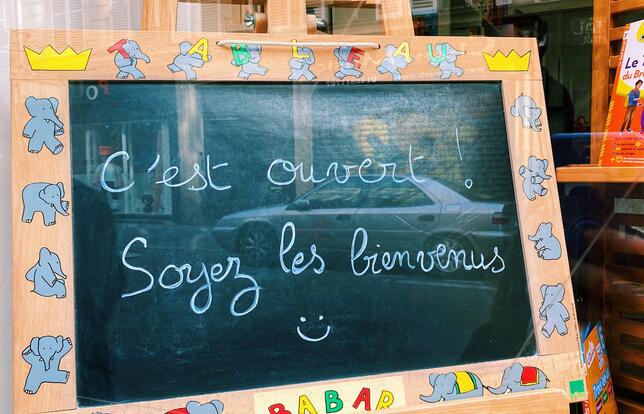 TABLEAU
C'est ouvert !
Soyez les bienvenus
BABAR